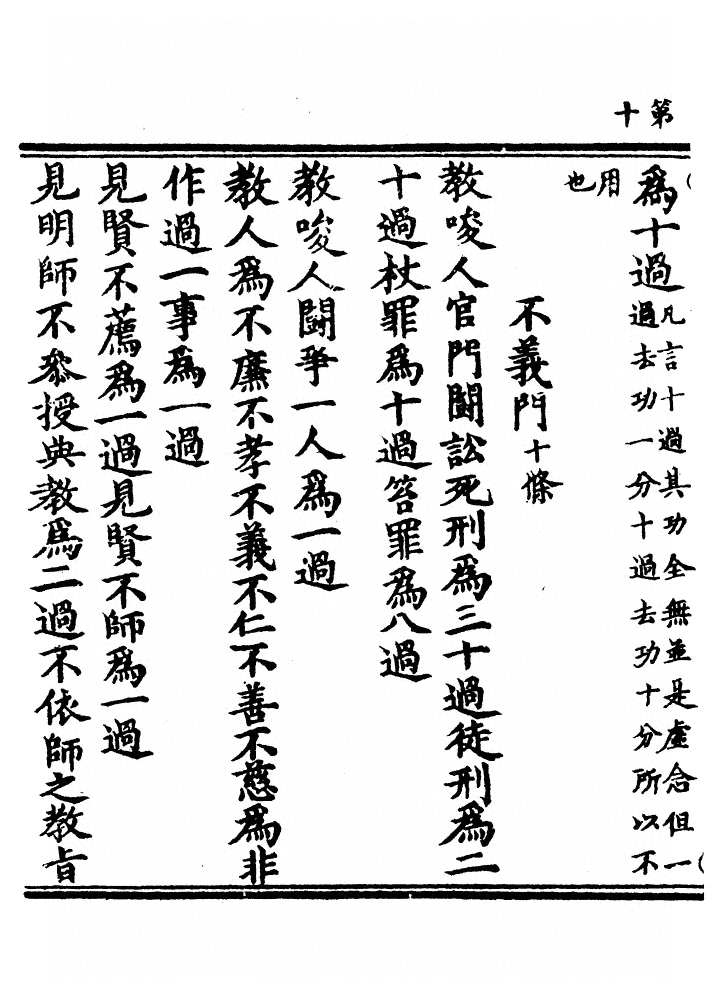 第十
爲十過凡言十過其功全無並是虛念但一
過去功一分十過去功十分所以不
用也
不義門十條
教唆人官門鬪訟死刑爲三十過徒刑爲二
十過杖罪爲十過笞罪爲八過
教唆人鬪爭一人爲一過
教人爲不廉不孝不義不仁不善不慈爲非
作過一事爲一過
見賢不薦爲一過見賢不師爲一過
見明師不參授典教爲二過不依師之教旨